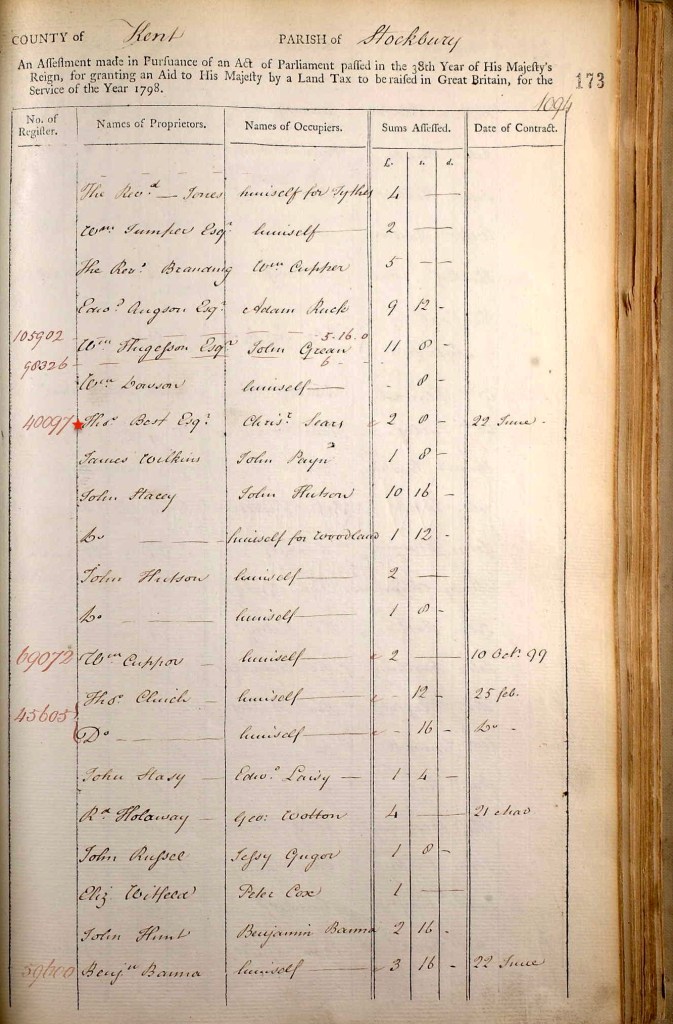 COUNTY of Kent PARISH of Stockbury
An Assessment made in Pursuance of an Act of Parliament passed in the 38th Year of His Majesty's
Reign, for granting an Aid to His Majesty by a Land Tax to be raised in Great Britain, for the
Service of the Year 1798.
173
1094
No. of Register. Names of Proprietors. Names of Occupiers. Sums Assessed. Date of Contract.
£. s. d.
The Revd — Jones himself for Tythes 4 —
Wm Jumper Esqr himself — 2 —
The Revd Branding Wm Cupper 5 —
Edwd Augson Esqr Adam Ruck 9 12 -
105902 5.16.0
Wm Hugesson Esqr John Grean 11 8 -
98326 6
Wm Dowson himself - 8 -
40097 Thos Best Esqr Christ Sears 2 8 - 22 June -
James Wilkins John Payn 1 8 -
John Stacey John Hutson 10 16 -
Do — himself for Woodland 1 12 -
John Hutson himself — 2 —
Do himself — 1 8 -
69072 Wm Cuppor - himself — 2 — 10 Octr 99
Thos Clinch - himself — - 12 - 25 feb.
45605
Do — himself — - 16 - Do -
John Stasy - Edwd Laisy — 1 4 -
Rd Holaway - Geo: Wotton 4 — 21
John Russel Jessy Gugor 1 8 -
Eliz Witfeld Peter Cox 1 —
John Hunt Benjamin Banna 2 16 -
59600 Benjn Banna himself — 3 16 - 22 June